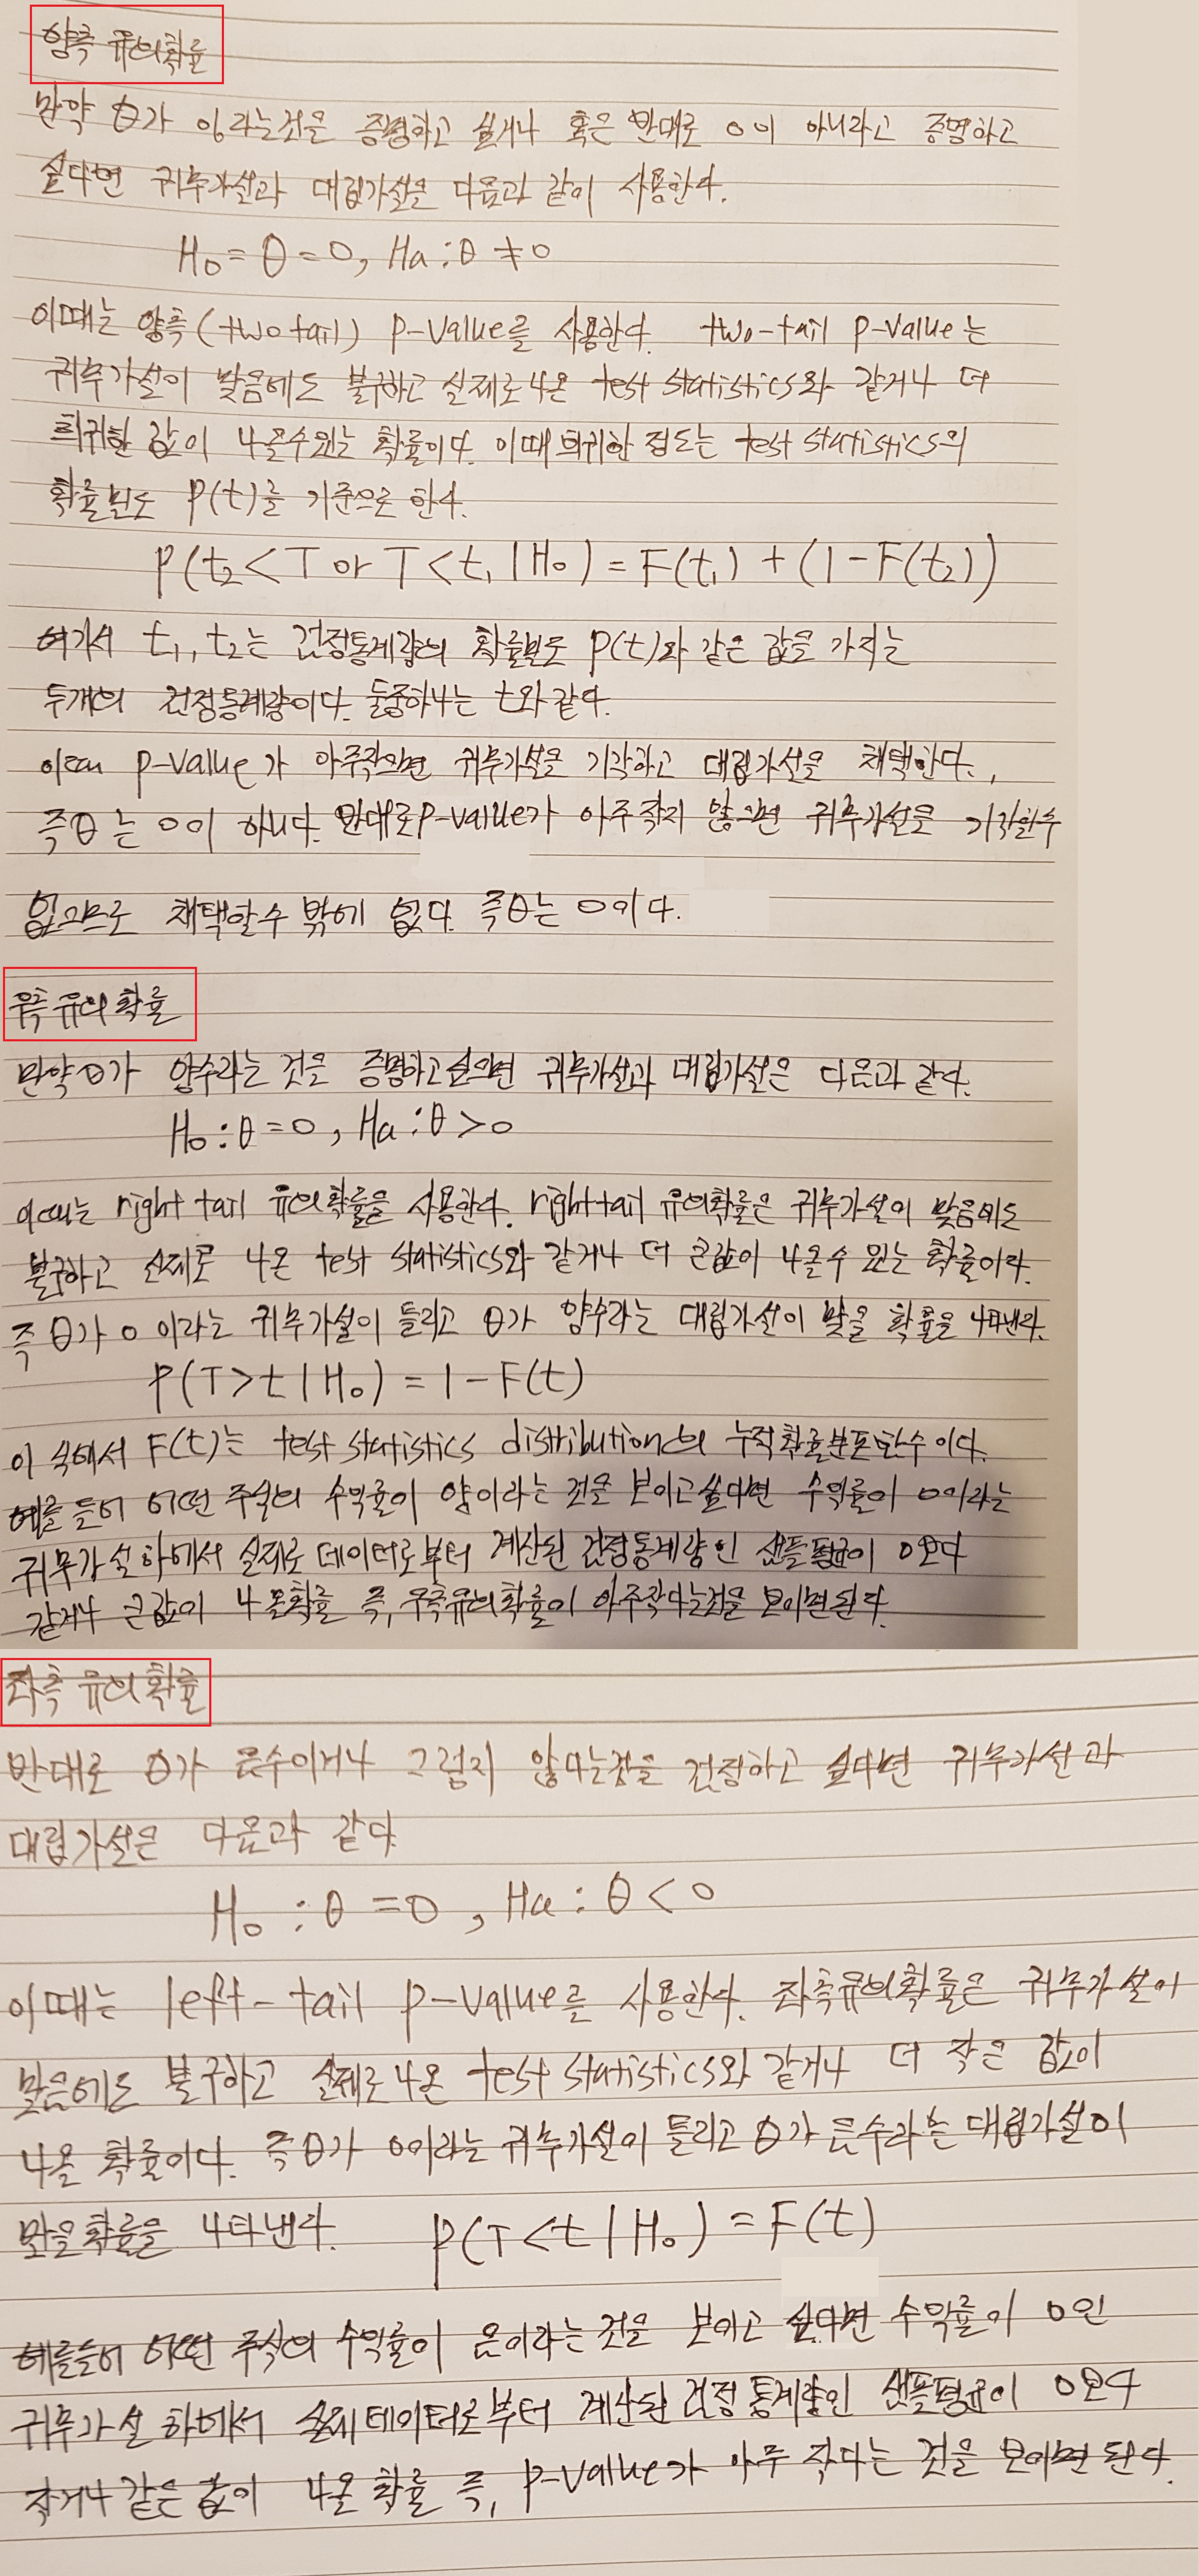 양측 유의확률
만약 θ가 0이라는것을 증명하고 싶거나 혹은 반대로 0이 아니라고 증명하고
싶다면 귀무가설과 대립가설은 다음과 같이 사용한다.
H₀ = θ = 0, Ha : θ ≠ 0
이때는 양측(two tail) p-value를 사용한다. two-tail p-value는
귀무가설이 맞음에도 불구하고 실제로 나온 test statistics와 같거나 더
희귀한 값이 나올수있는 확률이다. 이때 희귀한 정도는 test statistics의
확률분도 p(t)를 기준으로 한다.
P(t₂ < T or T < t₁ | H₀) = F(t₁) + (1 - F(t₂))
여기서 t₁, t₂는 검정통계량의 확률분포 p(t)와 같은 값을 가지는
두개의 검정통계량이다. 둘중하나는 t와 같다.
이때 p-value가 아주작으면 귀무가설을 기각하고 대립가설을 채택한다.,
즉 θ는 0이 아니다. 반대로 p-value가 아주 작지 않으면 귀무가설을 기각할수
없으므로 채택할수 밖에 없다. 즉 θ는 0이다.
우측 유의 확률
만약 θ가 양수라는 것을 증명하고싶으면 귀무가설과 대립가설은 다음과 같다.
H₀ : θ = 0, Ha : θ > 0
이때는 right tail 유의확률을 사용한다. right tail 유의확률은 귀무가설이 맞음에도
불구하고 실제로 나온 test statistics와 같거나 더 큰값이 나올수 있는 확률이다.
즉 θ가 0 이라는 귀무가설이 틀리고 θ가 양수라는 대립가설이 맞을 확률을 나타낸다.
P(T > t | H₀) = 1 - F(t)
이 식에서 F(t)는 test statistics distribution의 누적확률분포함수 이다.
예를 들어 어떤 주식의 수익률이 양이라는 것을 보이고싶다면 수익률이 0이라는
귀무가설하에서 실제로 데이터로부터 계산된 검정통계량인 샘플평균이 0보다
같거나 큰값이 나올확률 즉, 우측유의확률이 아주작다는것을 보이면된다.
좌측 유의 확률
반대로 θ가 음수이거나 그렇지 않다는것을 검정하고 싶다면 귀무가설과
대립가설은 다음과 같다
H₀ : θ = 0, Ha : θ < 0
이때는 left-tail p-value를 사용한다. 좌측유의확률은 귀무가설이
맞음에도 불구하고 실제로 나온 test statistics와 같거나 더 작은 값이
나올 확률이다. 즉 θ가 0이라는 귀무가설이 틀리고 θ가 음수라는 대립가설이
맞을확률을 나타낸다. P(T < t | H₀) = F(t)
예를들어 어떤 주식의 수익률이 음이라는 것을 보이고 싶다면 수익률이 0인
귀무가설 하에서 실제 데이터로부터 계산된 검정 통계량인 샘플평균이 0보다
작거나 같은 값이 나올 확률 즉, p-value가 아주 작다는 것을 보이면 된다.